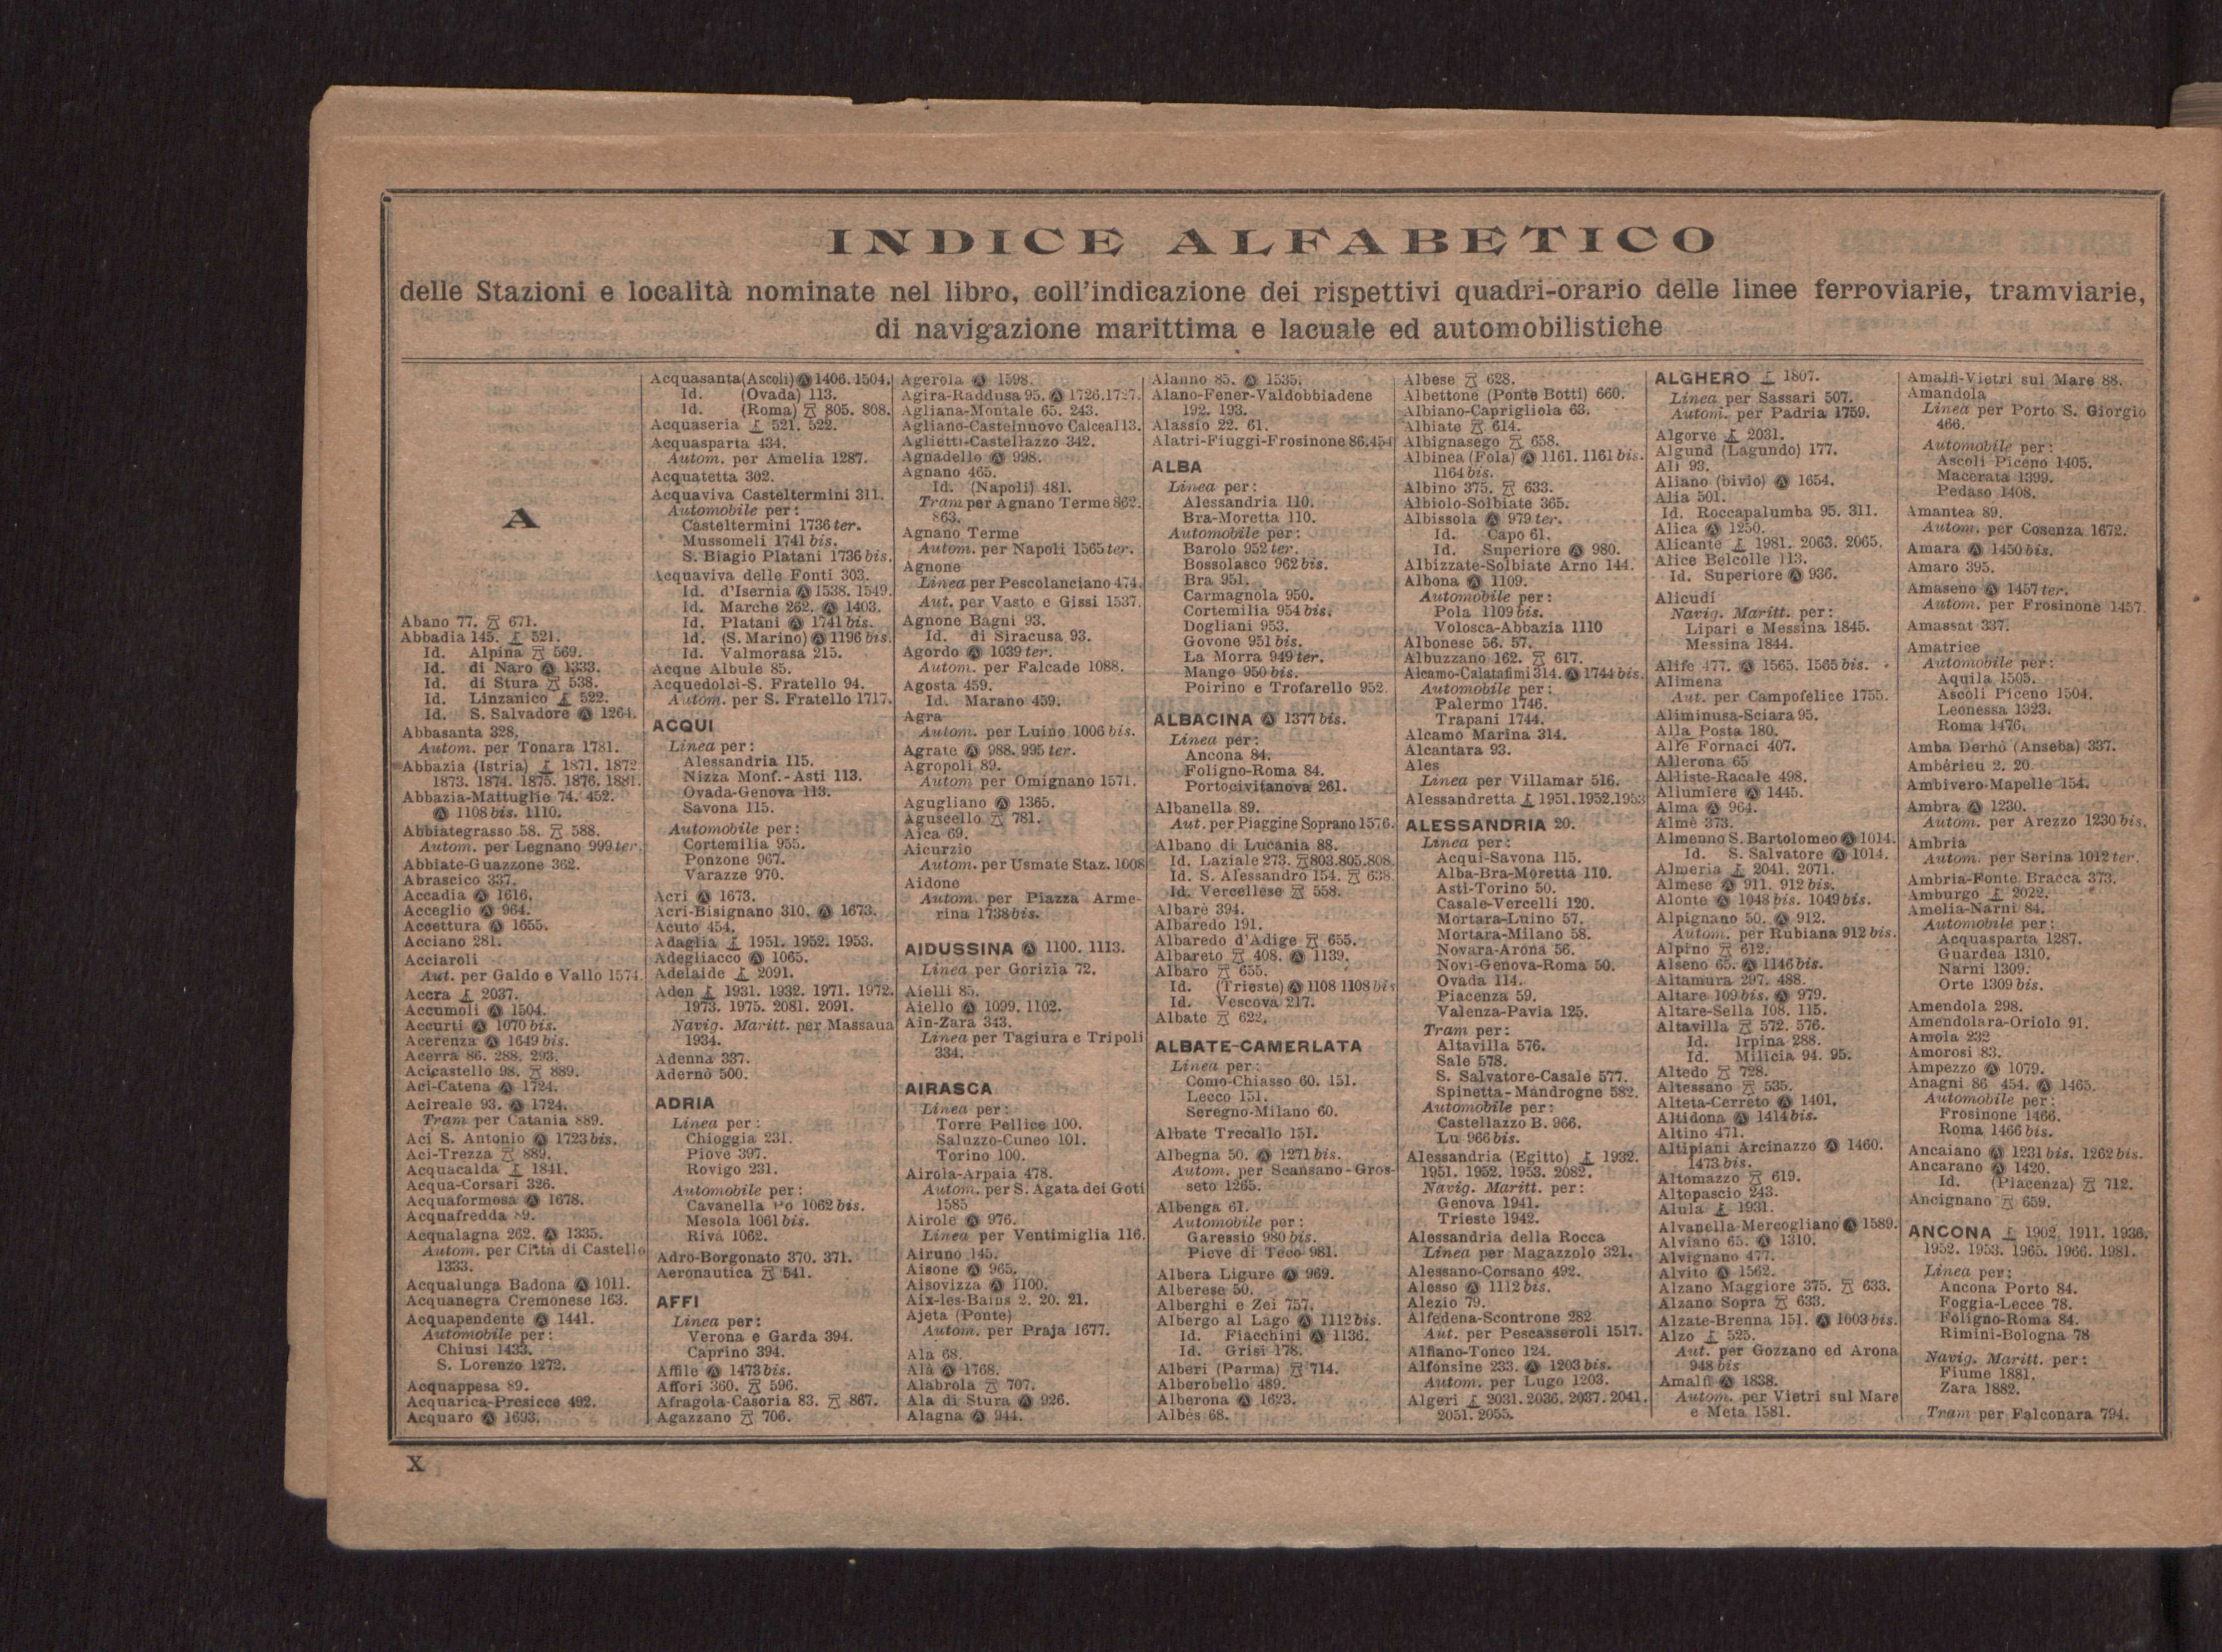 INDICE ALFABETICO
delle Stazioni e località nominate nel libro, coll'indicazione dei rispettivi quadri-orario delle linee ferroviarie, tramviarie,
di navigazione marittima e lacuale ed automobilistiche
A
Abano 77. 671.
Abbadia 145. 521.
Id. Alpina 569.
Id. di Naro Ⓐ 1333.
Id. di Stura 538.
Id. Linzanico 522.
Id. S. Salvadore Ⓐ 1264.
Abbasanta 328.
Autom. per Tonara 1781.
Abbazia (Istria) 1871. 1872
1873. 1874. 1875. 1876. 1881.
Abbazia-Mattuglie 74. 452.
Ⓐ 1108 bis. 1110.
Abbiategrasso 58. 588.
Autom. per Legnano 999 ter.
Abbiate-Guazzone 362.
Abrascico 337.
Accadia Ⓐ 1616.
Acceglio Ⓐ 964.
Accettura Ⓐ 1655.
Acciano 281.
Acciaroli
Aut. per Galdo e Vallo 1574.
Accra 2037.
Accumoli Ⓐ 1504.
Accurti Ⓐ 1070 bis.
Acerenza Ⓐ 1649 bis.
Acerra 86. 288. 293.
Acicastello 98. 889.
Aci-Catena Ⓐ 1724.
Acireale 93. Ⓐ 1724.
Tram per Catania 889.
Aci S. Antonio Ⓐ 1723 bis.
Aci-Trezza 889.
Acquacalda 1841.
Acqua-Corsari 326.
Acquaformosa Ⓐ 1678.
Acquafredda 89.
Acqualagna 262. Ⓐ 1335.
Autom. per Città di Castello
1333.
Acqualunga Badona Ⓐ 1011.
Acquanegra Cremonese 163.
Acquapendente Ⓐ 1441.
Automobile per:
Chiusi 1433.
S. Lorenzo 1272.
Acquappesa 89.
Acquarica-Presicce 492.
Acquaro Ⓐ 1693.
Acquasanta (Ascoli) Ⓐ 1406. 1504.
Id. (Ovada) 113.
Id. (Roma) 805. 808.
Acquaseria 521. 522.
Acquasparta 434.
Autom. per Amelia 1287.
Acquatetta 302.
Acquaviva Casteltermini 311.
Automobile per:
Casteltermini 1736 ter.
Mussomeli 1741 bis.
S. Biagio Platani 1736 bis.
Acquaviva delle Fonti 303.
Id. d'Isernia Ⓐ 1538. 1549.
Id. Marche 262. Ⓐ 1403.
Id. Platani Ⓐ 1741 bis.
Id. (S. Marino) Ⓐ 1196 bis.
Id. Valmorasa 215.
Acque Albule 85.
Acquedolci-S. Fratello 94.
Autom. per S. Fratello 1717.
ACQUI
Linea per:
Alessandria 115.
Nizza Monf.-Asti 113.
Ovada-Genova 113.
Savona 115.
Automobile per:
Cortemilia 955.
Ponzone 967.
Varazze 970.
Acri Ⓐ 1673.
Acri-Bisignano 310. Ⓐ 1673.
Acuto 454.
Adaglia 1951. 1952. 1953.
Adegliacco Ⓐ 1065.
Adelaide 2091.
Aden 1931. 1932. 1971. 1972.
1973. 1975. 2081. 2091.
Navig. Maritt. per Massaua
1934.
Adenna 337.
Adernò 500.
ADRIA
Linea per:
Chioggia 231.
Piove 397.
Rovigo 231.
Automobile per:
Cavanella Po 1062 bis.
Mesola 1061 bis.
Riva 1062.
Adro-Borgonato 370. 371.
Aeronautica 541.
AFFI
Linea per:
Verona e Garda 394.
Caprino 394.
Affile Ⓐ 1473 bis.
Affori 360. 596.
Afragola-Casoria 83. 867.
Agazzano 706.
Agerola Ⓐ 1598.
Agira-Raddusa 95. Ⓐ 1726. 1727.
Agliana-Montale 65. 243.
Agliano-Castelnuovo Calcea 113.
Aglietti-Castellazzo 342.
Agnadello Ⓐ 998.
Agnano 465.
Id. (Napoli) 481.
Tram per Agnano Terme 862.
863.
Agnano Terme
Autom. per Napoli 1565 ter.
Agnone
Linea per Pescolanciano 474.
Aut. per Vasto e Gissi 1537.
Agnone Bagni 93.
Id. di Siracusa 93.
Agordo Ⓐ 1039 ter.
Autom. per Falcade 1088.
Agosta 459.
Id. Marano 459.
Agra
Autom. per Luino 1006 bis.
Agrate Ⓐ 988. 995 ter.
Agropoli 89.
Autom per Omignano 1571.
Agugliano Ⓐ 1365.
Aguscello 781.
Aica 69.
Aicurzio
Autom. per Usmate Staz. 1008
Aidone
Autom. per Piazza Arme-
rina 1738 bis.
AIDUSSINA Ⓐ 1100. 1113.
Linea per Gorizia 72.
Aielli 85.
Aiello Ⓐ 1099. 1102.
Ain-Zara 343.
Linea per Tagiura e Tripoli
334.
AIRASCA
Linea per:
Torre Pellice 100.
Saluzzo-Cuneo 101.
Torino 100.
Airola-Arpaia 478.
Autom. per S. Agata dei Goti
1585
Airole Ⓐ 976.
Linea per Ventimiglia 116.
Airuno 145.
Aisone Ⓐ 965.
Aisovizza Ⓐ 1100.
Aix-les-Bains 2. 20. 21.
Ajeta (Ponte)
Autom. per Praja 1677.
Ala 68.
Alà Ⓐ 1768.
Alabrola 707.
Ala di Stura Ⓐ 926.
Alagna Ⓐ 944.
Alanno 85. Ⓐ 1535.
Alano-Fener-Valdobbiadene
192. 193.
Alassio 22. 61.
Alatri-Fiuggi-Frosinone 86. 454
ALBA
Linea per:
Alessandria 110.
Bra-Moretta 110.
Automobile per:
Barolo 952 ter.
Bossolasco 962 bis.
Bra 951.
Carmagnola 950.
Cortemilia 954 bis.
Dogliani 953.
Govone 951 bis.
La Morra 949 ter.
Mango 950 bis.
Poirino e Trofarello 952.
ALBACINA Ⓐ 1377 bis.
Linea per:
Ancona 84.
Foligno-Roma 84.
Portocivitanova 261.
Albanella 89.
Aut. per Piaggine Soprano 1576.
Albano di Lucania 88.
Id. Laziale 273. 803. 805. 808.
Id. S. Alessandro 154. 638.
Id. Vercellese 558.
Albarè 394.
Albaredo 191.
Albaredo d'Adige 655.
Albareto 408. Ⓐ 1139.
Albaro 655.
Id. (Trieste) Ⓐ 1108 1108 bis
Id. Vescova 217.
Albate 622.
ALBATE-CAMERLATA
Linea per:
Como-Chiasso 60. 151.
Lecco 151.
Seregno-Milano 60.
Albate Trecallo 151.
Albegna 50. Ⓐ 1271 bis.
Autom. per Scansano-Gros-
seto 1265.
Albenga 61.
Automobile per:
Garessio 980 bis.
Pieve di Teco 981.
Albera Ligure Ⓐ 969.
Alberese 50.
Alberghi e Zei 757.
Albergo al Lago Ⓐ 1112 bis.
Id. Fiacchini Ⓐ 1136.
Id. Grisi 178.
Alberi (Parma) 714.
Alberobello 489.
Alberona Ⓐ 1623.
Albes 68.
Albese 628.
Albettone (Ponte Botti) 660.
Albiano-Caprigliola 63.
Albiate 614.
Albignasego 658.
Albinea (Fola) Ⓐ 1161. 1161 bis.
1164 bis.
Albino 375. 633.
Albiolo-Solbiate 365.
Albissola Ⓐ 979 ter.
Id. Capo 61.
Id. Superiore Ⓐ 980.
Albizzate-Solbiate Arno 144.
Albona Ⓐ 1109.
Automobile per:
Pola 1109 bis.
Volosca-Abbazia 1110
Albonese 56. 57.
Albuzzano 162. 617.
Alcamo-Calatafimi 314. Ⓐ 1744 bis.
Automobile per:
Palermo 1746.
Trapani 1744.
Alcamo Marina 314.
Alcantara 93.
Ales
Linea per Villamar 516.
Alessandretta 1951. 1952. 1953
ALESSANDRIA 20.
Linea per:
Acqui-Savona 115.
Alba-Bra-Moretta 110.
Asti-Torino 50.
Casale-Vercelli 120.
Mortara-Luino 57.
Mortara-Milano 58.
Novara-Arona 56.
Novi-Genova-Roma 50.
Ovada 114.
Piacenza 59.
Valenza-Pavia 125.
Tram per:
Altavilla 576.
Sale 578.
S. Salvatore-Casale 577.
Spinetta-Mandrogne 582.
Automobile per:
Castellazzo B. 966.
Lu 966 bis.
Alessandria (Egitto) 1932.
1951. 1952. 1953. 2082.
Navig. Maritt. per:
Genova 1941.
Trieste 1942.
Alessandria della Rocca
Linea per Magazzolo 321.
Alessano-Corsano 492.
Alesso Ⓐ 1112 bis.
Alezio 79.
Alfedena-Scontrone 282
Aut. per Pescasseroli 1517.
Alfiano-Tonco 124.
Alfonsine 233. Ⓐ 1203 bis.
Autom. per Lugo 1203.
Algeri 2031. 2036. 2037. 2041.
2051. 2055.
ALGHERO 1807.
Linea per Sassari 507.
Autom. per Padria 1759.
Algorve 2031.
Algund (Lagundo) 177.
Alì 93.
Aliano (bivio) Ⓐ 1654.
Alia 501.
Id. Roccapalumba 95. 311.
Alica Ⓐ 1250.
Alicante 1981. 2063. 2065.
Alice Belcolle 113.
Id. Superiore Ⓐ 936.
Alicudi
Navig. Maritt. per:
Lipari e Messina 1845.
Messina 1844.
Alife 477. Ⓐ 1565. 1565 bis.
Alimena
Aut. per Campofelice 1755.
Aliminusa-Sciara 95.
Alla Posta 180.
Alle Fornaci 407.
Allerona 65
Alliste-Racale 498.
Allumiere Ⓐ 1445.
Alma Ⓐ 964.
Almè 373.
Almenno S. Bartolomeo Ⓐ 1014.
Id. S. Salvatore Ⓐ 1014.
Almeria 2041. 2071.
Almese Ⓐ 911. 912 bis.
Alonte Ⓐ 1048 bis. 1049 bis.
Alpignano 50. Ⓐ 912.
Autom. per Rubiana 912 bis.
Alpino 612.
Alseno 65. Ⓐ 1146 bis.
Altamura 297. 488.
Altare 109 bis. Ⓐ 979.
Altare-Sella 108. 115.
Altavilla 572. 576.
Id. Irpina 288.
Id. Milicia 94. 95.
Altedo 728.
Altessano 535.
Alteta-Cerreto Ⓐ 1401.
Altidona Ⓐ 1414 bis.
Altino 471.
Altipiani Arcinazzo Ⓐ 1460.
1473 bis.
Altomazzo 619.
Altopascio 243.
Alula 1931.
Alvanella-Mercogliano Ⓐ 1589.
Alviano 65. Ⓐ 1310.
Alvignano 477.
Alvito Ⓐ 1562.
Alzano Maggiore 375. 633.
Alzano Sopra 633.
Alzate-Brenna 151. Ⓐ 1003 bis.
Alzo 525.
Aut. per Gozzano ed Arona
948 bis
Amalfi Ⓐ 1838.
Autom. per Vietri sul Mare
e Meta 1581.
Amalfi-Vietri sul Mare 88.
Amandola
Linea per Porto S. Giorgio
466.
Automobile per:
Ascoli Piceno 1405.
Macerata 1399.
Pedaso 1408.
Amantea 89.
Autom. per Cosenza 1672.
Amara Ⓐ 1450 bis.
Amaro 395.
Amaseno Ⓐ 1457 ter.
Autom. per Frosinone 1457.
Amassat 337.
Amatrice
Automobile per:
Aquila 1505.
Ascoli Piceno 1504.
Leonessa 1323.
Roma 1476.
Amba Derhò (Anseba) 337.
Ambérieu 2. 20.
Ambivero-Mapelle 154.
Ambra Ⓐ 1230.
Autom. per Arezzo 1230 bis.
Ambria
Autom. per Serina 1012 ter.
Ambria-Fonte Bracca 373.
Amburgo 2022.
Amelia-Narni 84.
Automobile per:
Acquasparta 1287.
Guardea 1310.
Narni 1309.
Orte 1309 bis.
Amendola 298.
Amendolara-Oriolo 91.
Amola 232
Amorosi 83.
Ampezzo Ⓐ 1079.
Anagni 86 454. Ⓐ 1465.
Automobile per:
Frosinone 1466.
Roma 1466 bis.
Ancaiano Ⓐ 1231 bis. 1262 bis.
Ancarano Ⓐ 1420.
Id. (Piacenza) 712.
Ancignano 659.
ANCONA 1902. 1911. 1936.
1952. 1953. 1965. 1966. 1981.
Linea per:
Ancona Porto 84.
Foggia-Lecce 78.
Foligno-Roma 84.
Rimini-Bologna 78
Navig. Maritt. per:
Fiume 1881.
Zara 1882.
Tram per Falconara 794.
X